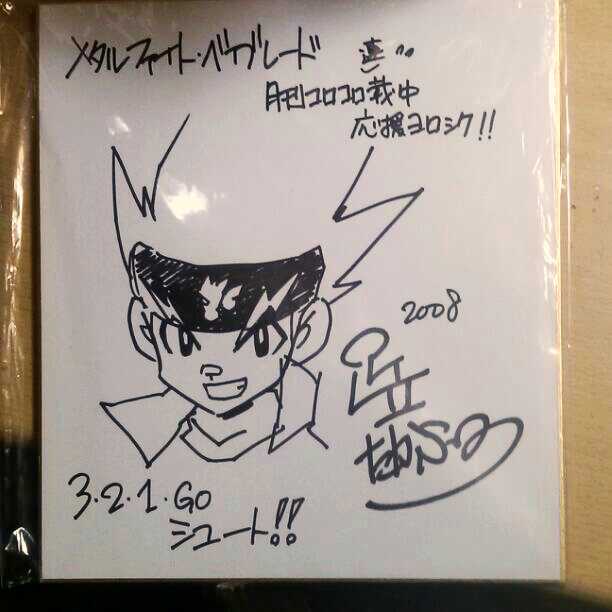 メタルファイト・ベイブレード
連
月刊コロコロ載中
応援ヨロシク!!
2008
足立
たかふみ
3・2・1・GO
シュート!!